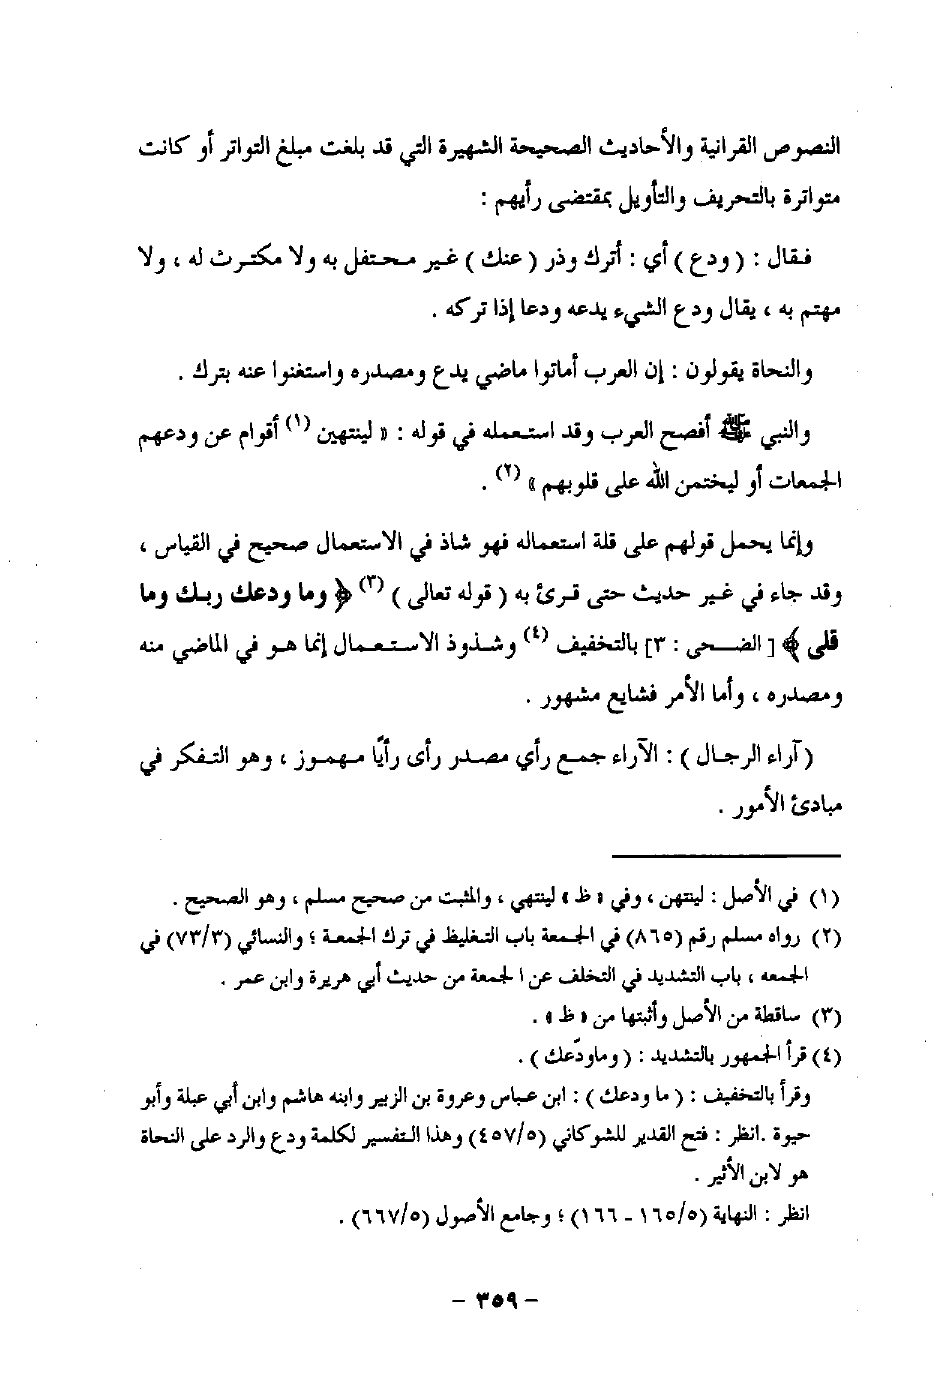 النصوص القرانية والأحاديث الصحيحة الشهيرة التي قد بلغت مبلغ التواتر أو كانت
متواترة بالتحريف والتأويل بمقتضى رأيهم :
فقال : ( ودع ) أي : أترك وذر ( عنك ) غير محتفل به ولا مكترث له ، ولا
مهتم به ، يقال ودع الشيء يدعه ودعا إذا تركه .
والنحاة يقولون : إن العرب أماتوا ماضي يدع ومصدره واستغنوا عنه بترك .
والنبي ﷺ أفصح العرب وقد استعمله في قوله : « لينتهين (١) أقوام عن ودعهم
الجمعات أو ليختمن الله على قلوبهم » (٢) .
وإنما يحمل قولهم على قلة استعماله فهو شاذ في الاستعمال صحيح في القياس ،
وقد جاء في غير حديث حتى قرئ به ( قوله تعالى ) (٣) ﴿ وما ودعك ربك وما
قلى ﴾ [ الضحى : ٣] بالتخفيف (٤) وشذوذ الاستعمال إنما هو في الماضي منه
ومصدره ، وأما الأمر فشايع مشهور .
( آراء الرجال ) : الآراء جمع رأي مصدر رأى رأيًا مهموز ، وهو التفكر في
مبادئ الأمور .
(١) في الأصل : لينتهن ، وفي « ظ » لينتهي ، والمثبت من صحيح مسلم ، وهو الصحيح .
(٢) رواه مسلم رقم (٨٦٥) في الجمعة باب التغليظ في ترك الجمعة ؛ والنسائي (٧٣/٣) في
الجمعه ، باب التشديد في التخلف عن ا لجمعة من حديث أبي هريرة وابن عمر .
(٣) ساقطة من الأصل وأثبتها من « ظ » .
(٤) قرأ الجمهور بالتشديد : ( وماودّعك ) .
وقرأ بالتخفيف : ( ما ودعك ) : ابن عباس وعروة بن الزبير وابنه هاشم وابن أبي عبلة وأبو
حيوة .انظر : فتح القدير للشوكاني (٤٥٧/٥) وهذا التفسير لكلمة ودع والرد على النحاة
هو لابن الأثير .
انظر : النهاية (١٦٥/٥ - ١٦٦) ؛ وجامع الأصول (٦٦٧/٥) .
- ٣٥٩ -